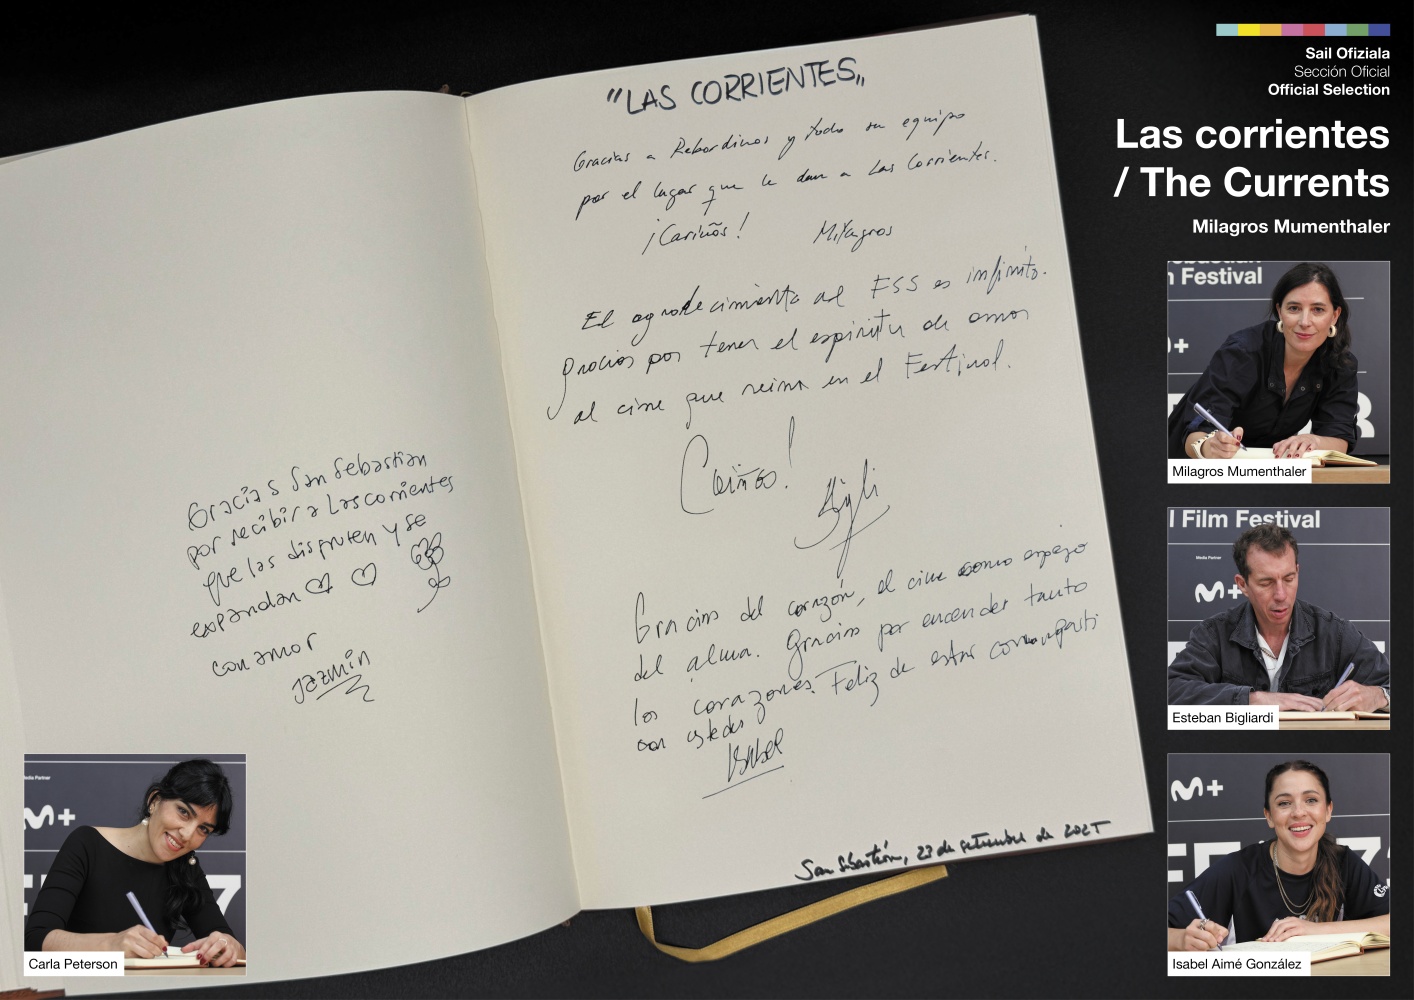 Sail Ofiziala
Sección Oficial
Official Selection
Las corrientes
/ The Currents
Milagros Mumenthaler
"LAS CORRIENTES"
Gracias a Rebordinos y todo su equipo
por el lugar que le dan a Las Corrientes.
¡Cariños! Milagros
El agradecimiento al FSS es infinito.
gracias por tener el espiritu de amor
al cine que reina en el Festival.
Cariños!
Gracias San Sebastian
por recibir a Las corrientes
que las disfruten y se
expandan
con amor
Jazmin
Gracias del corazón, el cine como espejo
del alma. Gracias por encender tanto
los corazones. Feliz de estar
con ustedes
Isabel
San Sebastián, 23 de setiembre de 2025
Sebastian
m Festival
+
Milagros Mumenthaler
l Film Festival
Media Partner
M+
Esteban Bigliardi
M+
Isabel Aimé González
Media Partner
M+
Carla Peterson